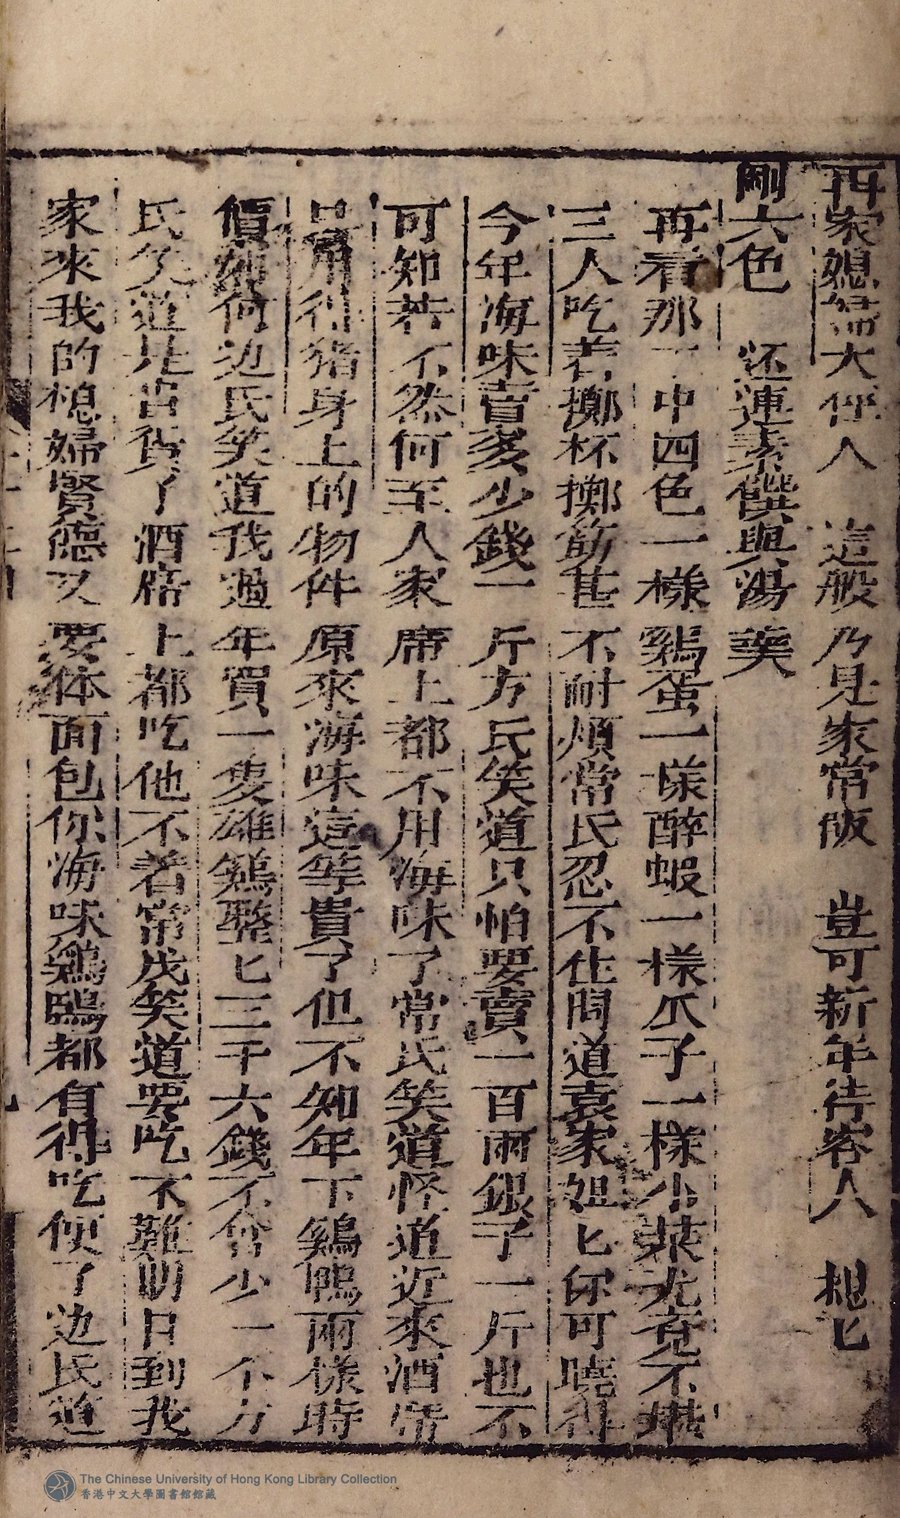 再家媳婦大便人　這般乃見家常飯　豈可新年待客人　想匕
剛六色　还連素饌與湯羮
再看那丁中四色一樣鷄蛋一樣醉蝦一樣爪子一樣小菜尤竟不堪
三人吃着擲杯擲筯甚不耐煩常氏忍不住問道袁家姐匕你可曉得
今年海味賣多少錢一斤方氏笑道只怕要賣一百兩銀子一斤也不
可知若不然何至人家席上都不用海味了常氏笑道怪道近來酒席
用得猪身上的物件原來海味這等貴了但不知年下鷄鴨兩様時
價如何边氏笑道我過年買一隻雄鷄整匕三千六錢不曾少一个方
氏笑道是當貨了酒席上都吃他不着常戊笑道要吃不難明日到我
家來我的媳婦賢德又要体面包你海味鷄鴨都有得吃便了边氏道
The Chinese University of Hong Kong Library Collection
香港中文大學圖書館館藏